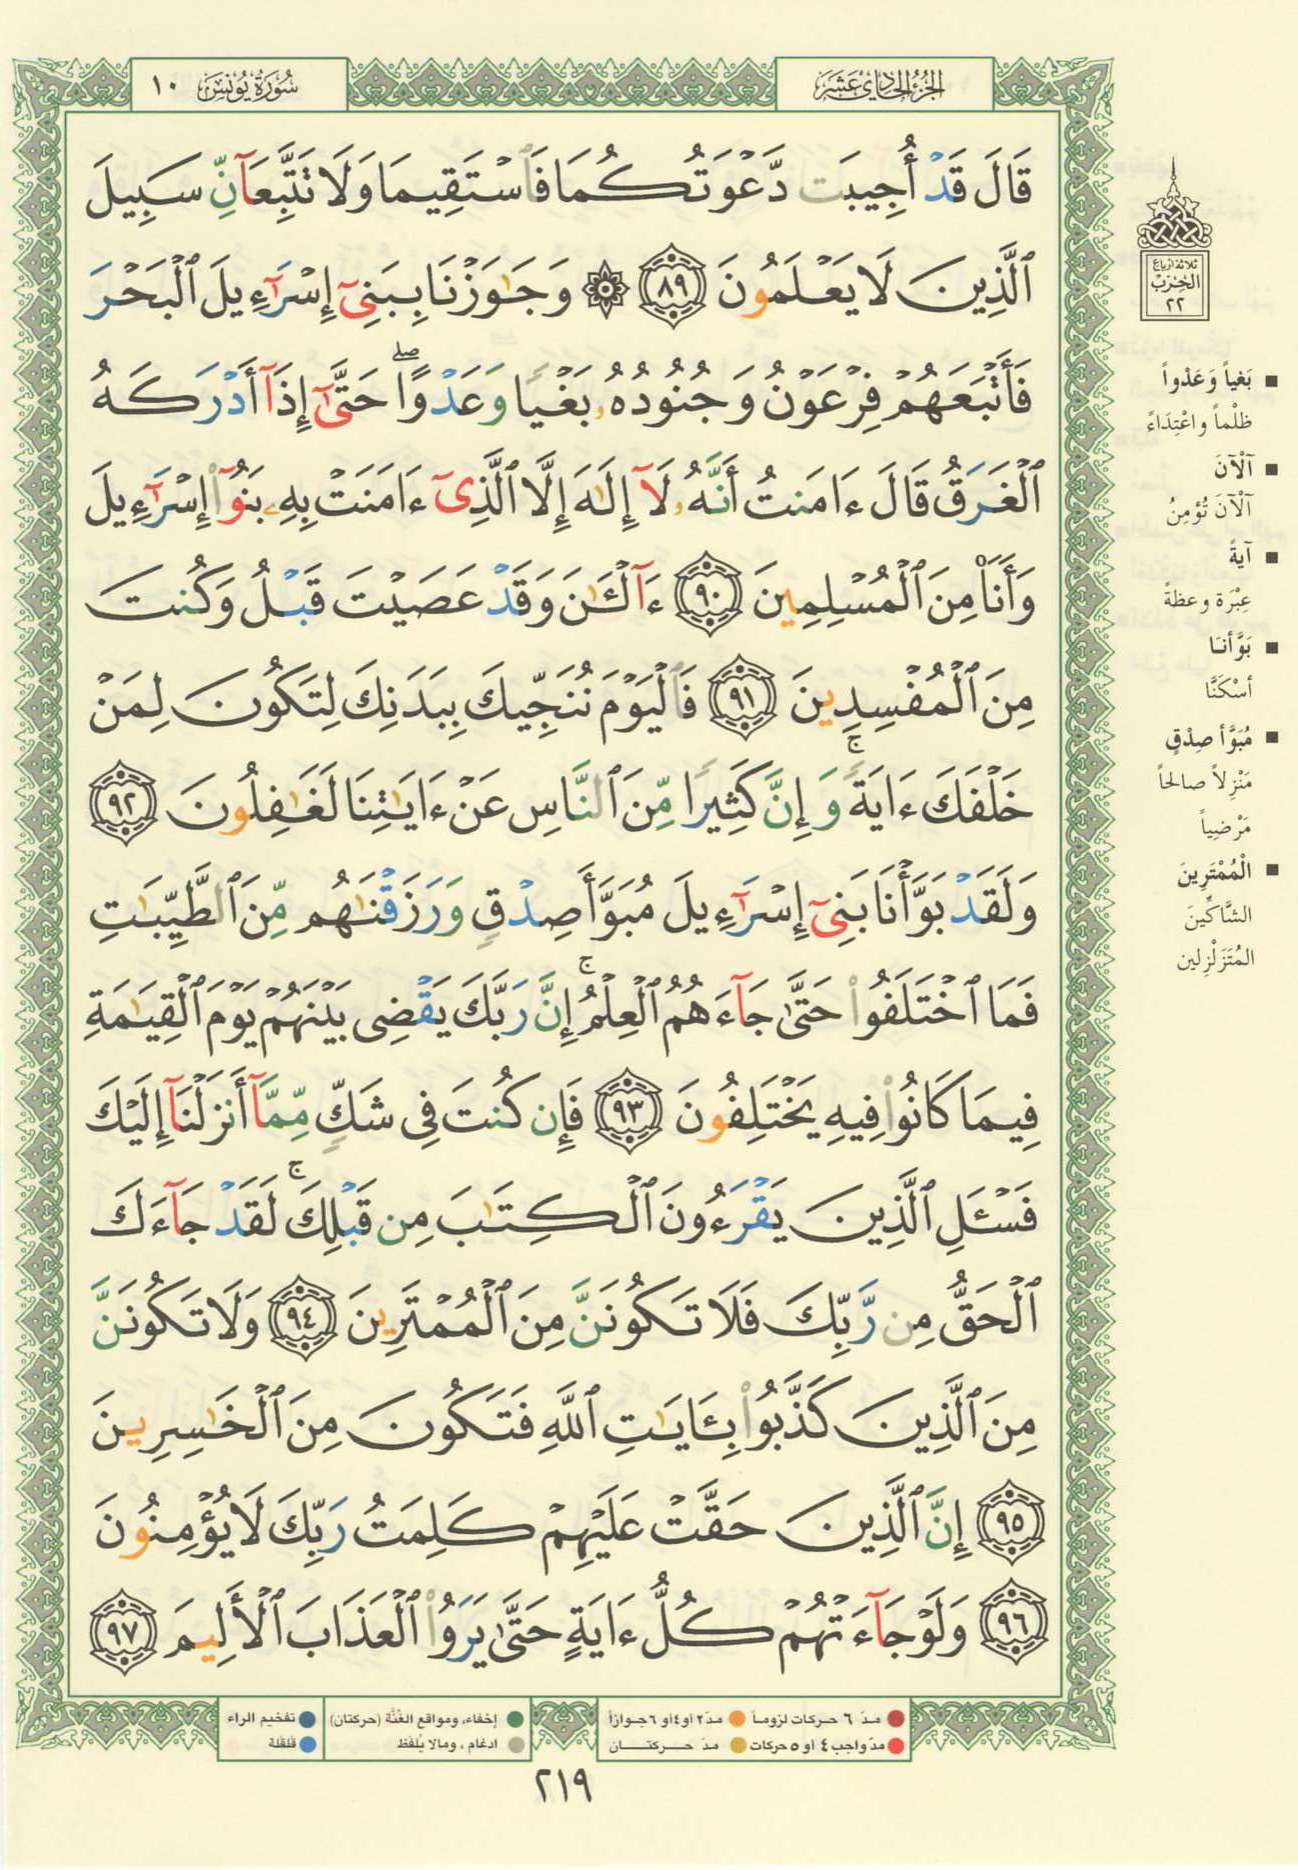 الجزء الحادي عشر
سورة يونس ١٠
قَالَ قَدْ أُجِيبَت دَّعْوَتُكُمَا فَٱسْتَقِيمَا وَلَا تَتَّبِعَآنِّ سَبِيلَ
ٱلَّذِينَ لَا يَعْلَمُونَ ٨٩ ۞ وَجَٰوَزْنَا بِبَنِىٓ إِسْرَٰٓءِيلَ ٱلْبَحْرَ
فَأَتْبَعَهُمْ فِرْعَوْنُ وَجُنُودُهُۥ بَغْيًا وَعَدْوًا ۖ حَتَّىٰٓ إِذَآ أَدْرَكَهُ
ٱلْغَرَقُ قَالَ ءَامَنتُ أَنَّهُۥ لَآ إِلَٰهَ إِلَّا ٱلَّذِىٓ ءَامَنَتْ بِهِۦ بَنُوٓا۟ إِسْرَٰٓءِيلَ
وَأَنَا۠ مِنَ ٱلْمُسْلِمِينَ ٩٠ ءَآلْـَٰٔنَ وَقَدْ عَصَيْتَ قَبْلُ وَكُنتَ
مِنَ ٱلْمُفْسِدِينَ ٩١ فَٱلْيَوْمَ نُنَجِّيكَ بِبَدَنِكَ لِتَكُونَ لِمَنْ
خَلْفَكَ ءَايَةً ۚ وَإِنَّ كَثِيرًا مِّنَ ٱلنَّاسِ عَنْ ءَايَٰتِنَا لَغَٰفِلُونَ ٩٢
وَلَقَدْ بَوَّأْنَا بَنِىٓ إِسْرَٰٓءِيلَ مُبَوَّأَ صِدْقٍ وَرَزَقْنَٰهُم مِّنَ ٱلطَّيِّبَٰتِ
فَمَا ٱخْتَلَفُوا۟ حَتَّىٰ جَآءَهُمُ ٱلْعِلْمُ ۚ إِنَّ رَبَّكَ يَقْضِى بَيْنَهُمْ يَوْمَ ٱلْقِيَٰمَةِ
فِيمَا كَانُوا۟ فِيهِ يَخْتَلِفُونَ ٩٣ فَإِن كُنتَ فِى شَكٍّ مِّمَّآ أَنزَلْنَآ إِلَيْكَ
فَسْـَٔلِ ٱلَّذِينَ يَقْرَءُونَ ٱلْكِتَٰبَ مِن قَبْلِكَ ۚ لَقَدْ جَآءَكَ
ٱلْحَقُّ مِن رَّبِّكَ فَلَا تَكُونَنَّ مِنَ ٱلْمُمْتَرِينَ ٩٤ وَلَا تَكُونَنَّ
مِنَ ٱلَّذِينَ كَذَّبُوا۟ بِـَٔايَٰتِ ٱللَّهِ فَتَكُونَ مِنَ ٱلْخَٰسِرِينَ
٩٥ إِنَّ ٱلَّذِينَ حَقَّتْ عَلَيْهِمْ كَلِمَتُ رَبِّكَ لَا يُؤْمِنُونَ
٩٦ وَلَوْ جَآءَتْهُمْ كُلُّ ءَايَةٍ حَتَّىٰ يَرَوُا۟ ٱلْعَذَابَ ٱلْأَلِيمَ ٩٧
ثلاثة أرباع
الحزب
٢٢
■ بَغياً وَعَدْواً
ظلْماً واعْتِدَاءً
■ آلْآنَ
آلْآنَ تُؤمِنُ
■ آيةً
عِبْرَة وعظةً
■ بَوَّأنا
أسْكَنَّا
■ مُبَوَّأ صِدْقٍ
مَنْزِلاً صالحاً
مَرْضِياً
■ الْمُمْتَرِينَ
الشَّاكِّينَ
المُتَزَلْزِلين
● مدّ ٦ حركات لزوماً ● مدّ ٢ او ٤ او ٦ جوازاً
● مدّ واجب ٤ او ٥ حركات ● مدّ حركتان
● إخفاء، ومواقع الغُنَّة (حركتان) ● تفخيم الراء
● ادغام، ومالا يُلفَظ ● قلقلة
٢١٩